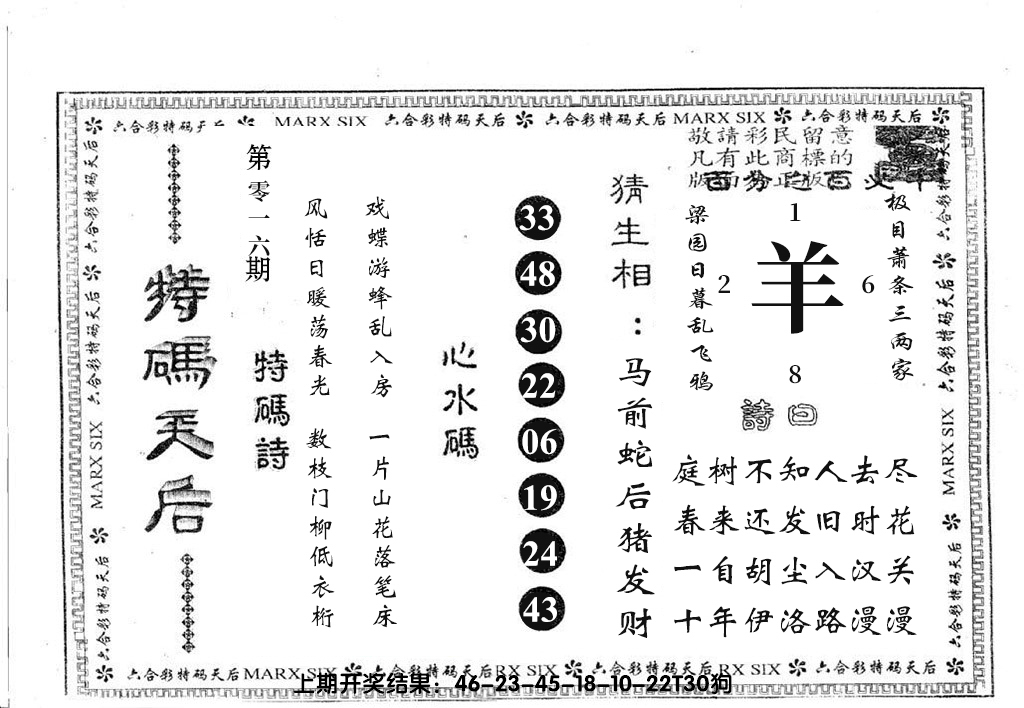 六合彩特码天后 MARX SIX 六合彩特码天后 六合彩特码天后 MARX SIX 六合彩特码天后
敬請彩民留意
凡有此商標的
版面 正版
第零一六期
特碼天后
特碼詩
风恬日暖荡春光
戏蝶游蜂乱入房
数枝门柳低衣桁
一片山花落笔床
心水碼
33
48
30
22
06
19
24
43
猜生相：马前蛇后猪发财
梁园日暮乱飞鸦
极目萧条三两家
1
2
羊
6
8
詩曰
庭树不知人去尽
春来还发旧时花
一自胡尘入汉关
十年伊洛路漫漫
六合彩特码天后
MARX SIX
六合彩特码天后
六合彩特码天后
MARX SIX
六合彩特码天后
六合彩特码天后 MARX SIX 六合彩特码天后 RX SIX 六合彩特码天后 RX SIX 六合彩特码天后
上期开奖结果：46-23-45-18-10-22T30狗